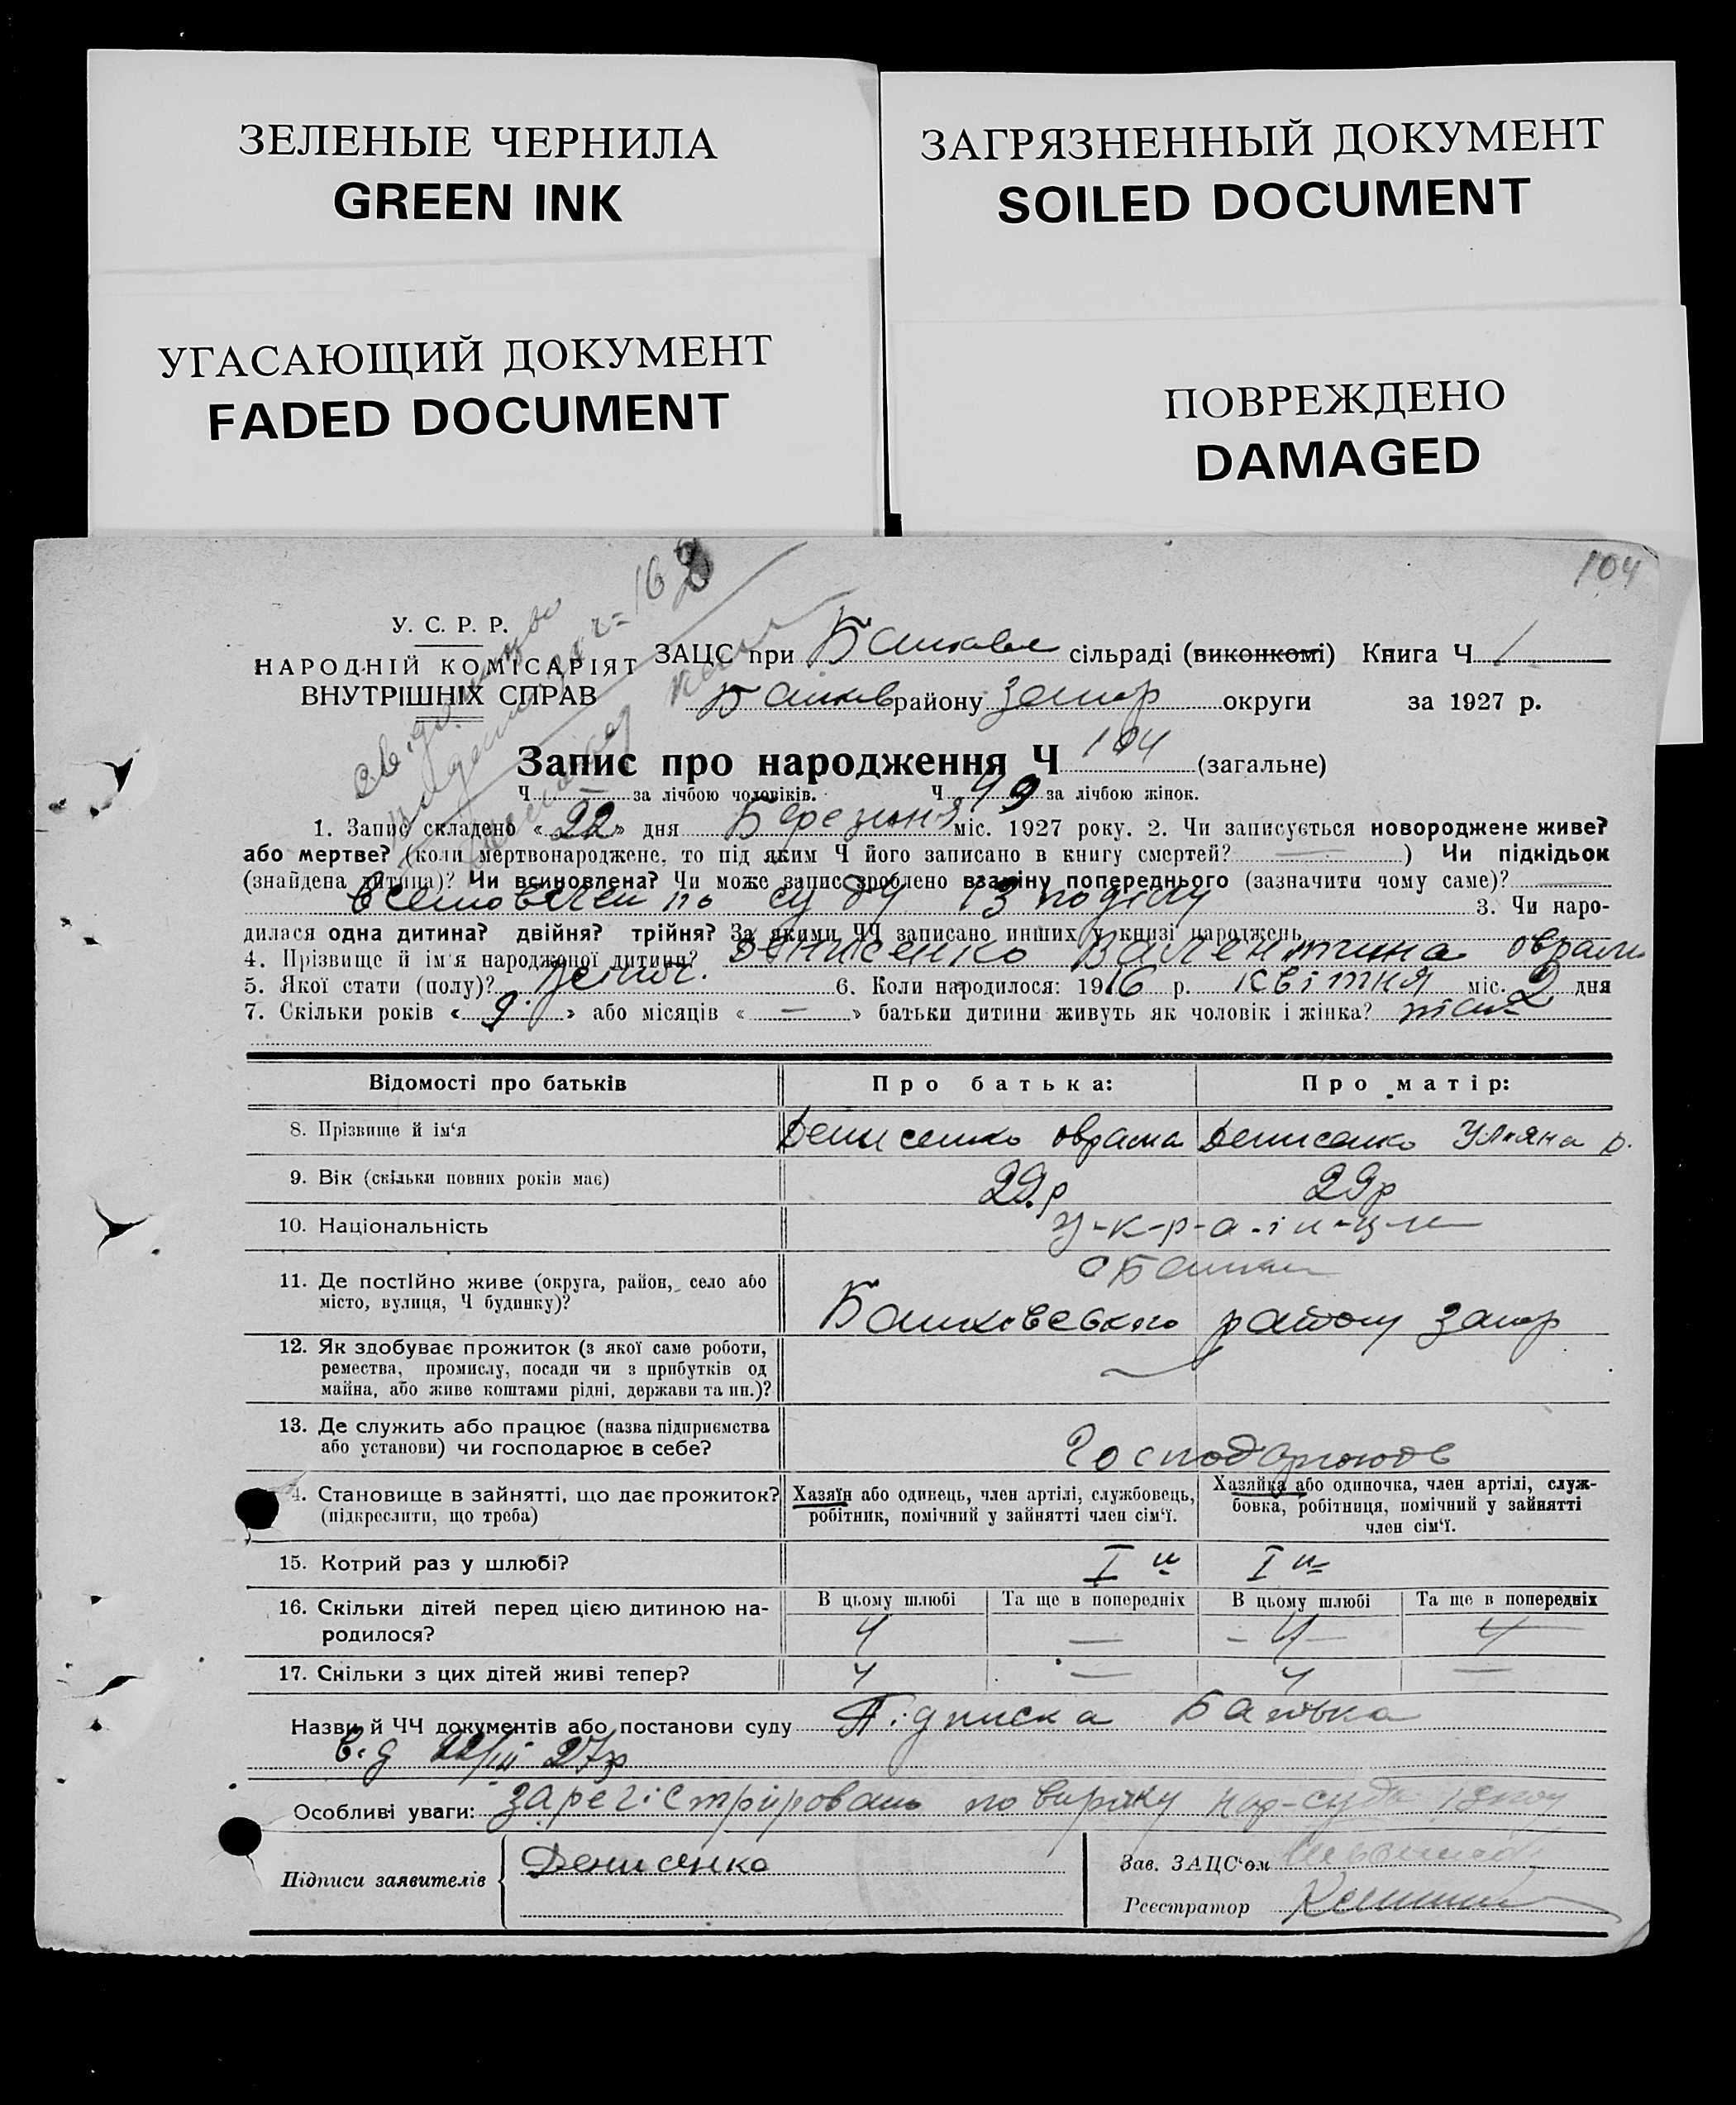 ЗЕЛЕНЫЕ ЧЕРНИЛА
GREEN INK
ЗАГРЯЗНЕННЫЙ ДОКУМЕНТ
SOILED DOCUMENT
УГАСАЮЩИЙ ДОКУМЕНТ
FADED DOCUMENT
ПОВРЕЖДЕНО
DAMAGED
104
У. С. Р. Р.
НАРОДНІЙ КОМІСАРІЯТ
ВНУТРІШНІХ СПРАВ
ЗАЦС при сільраді (виконкомі) Книга Ч 1
району Запор округи за 1927 р.
Запис про народження Ч 104 (загальне)
Ч — за лічбою чоловіків. Ч 49 за лічбою жінок.
1. Запис складено « 22 » дня Березня міс. 1927 року. 2. Чи записується новороджене живе?
або мертве? (коли мертвонароджене, то під яким Ч його записано в книгу смертей? — ) Чи підкідьок
(знайдена дитина)? Чи всиновлена? Чи може запис зроблено взаміну попереднього (зазначити чому саме)? —
по суду 3. Чи наро-
дилася одна дитина? двійня? трійня? За якими ЧЧ записано инших у книзі народжень
4. Прізвище й ім'я народженої дитини? Денисенко Валентина
5. Якої стати (полу)? жіноч. 6. Коли народилося: 1916 р. квітня міс. 2 дня
7. Скільки років « 9 » або місяців « — » батьки дитини живуть як чоловік і жінка?
Відомості про батьків Про батька: Про матір:
8. Прізвище й ім'я Денисенко оврама Денисенко Уляна
9. Вік (скільки повних років має) 29 р 29 р
10. Національність у-к-р-а-ї-н-ц-і
11. Де постійно живе (округа, район, село або
місто, вулиця, Ч будинку)? району Запор
12. Як здобуває прожиток (з якої саме роботи,
ремества, промислу, посади чи з прибутків од
майна, або живе коштами рідні, держави та ин.)?
13. Де служить або працює (назва підприємства
або установи) чи господарює в себе?
14. Становище в зайнятті, що дає прожиток?
(підкреслити, що треба)
Хазяїн або одинець, член артілі, службовець,
робітник, помічний у зайнятті член сім'ї.
Хазяйка або одиночка, член артілі, служ-
бовка, робітниця, помічний у зайнятті
член сім'ї.
15. Котрий раз у шлюбі? I й I й
16. Скільки дітей перед цією дитиною на-
родилося?
В цьому шлюбі Та ще в попередніх В цьому шлюбі Та ще в попередніх
4 — 4 4
17. Скільки з цих дітей живі тепер? 4 — 4 —
Назви й ЧЧ документів або постанови суду Підписка Батька
від 22/III 27р
Особливі уваги: зарегістріровано по вироку нар-суда
Підписи заявителів Денисенко
Зав. ЗАЦС'ом
Реєстратор